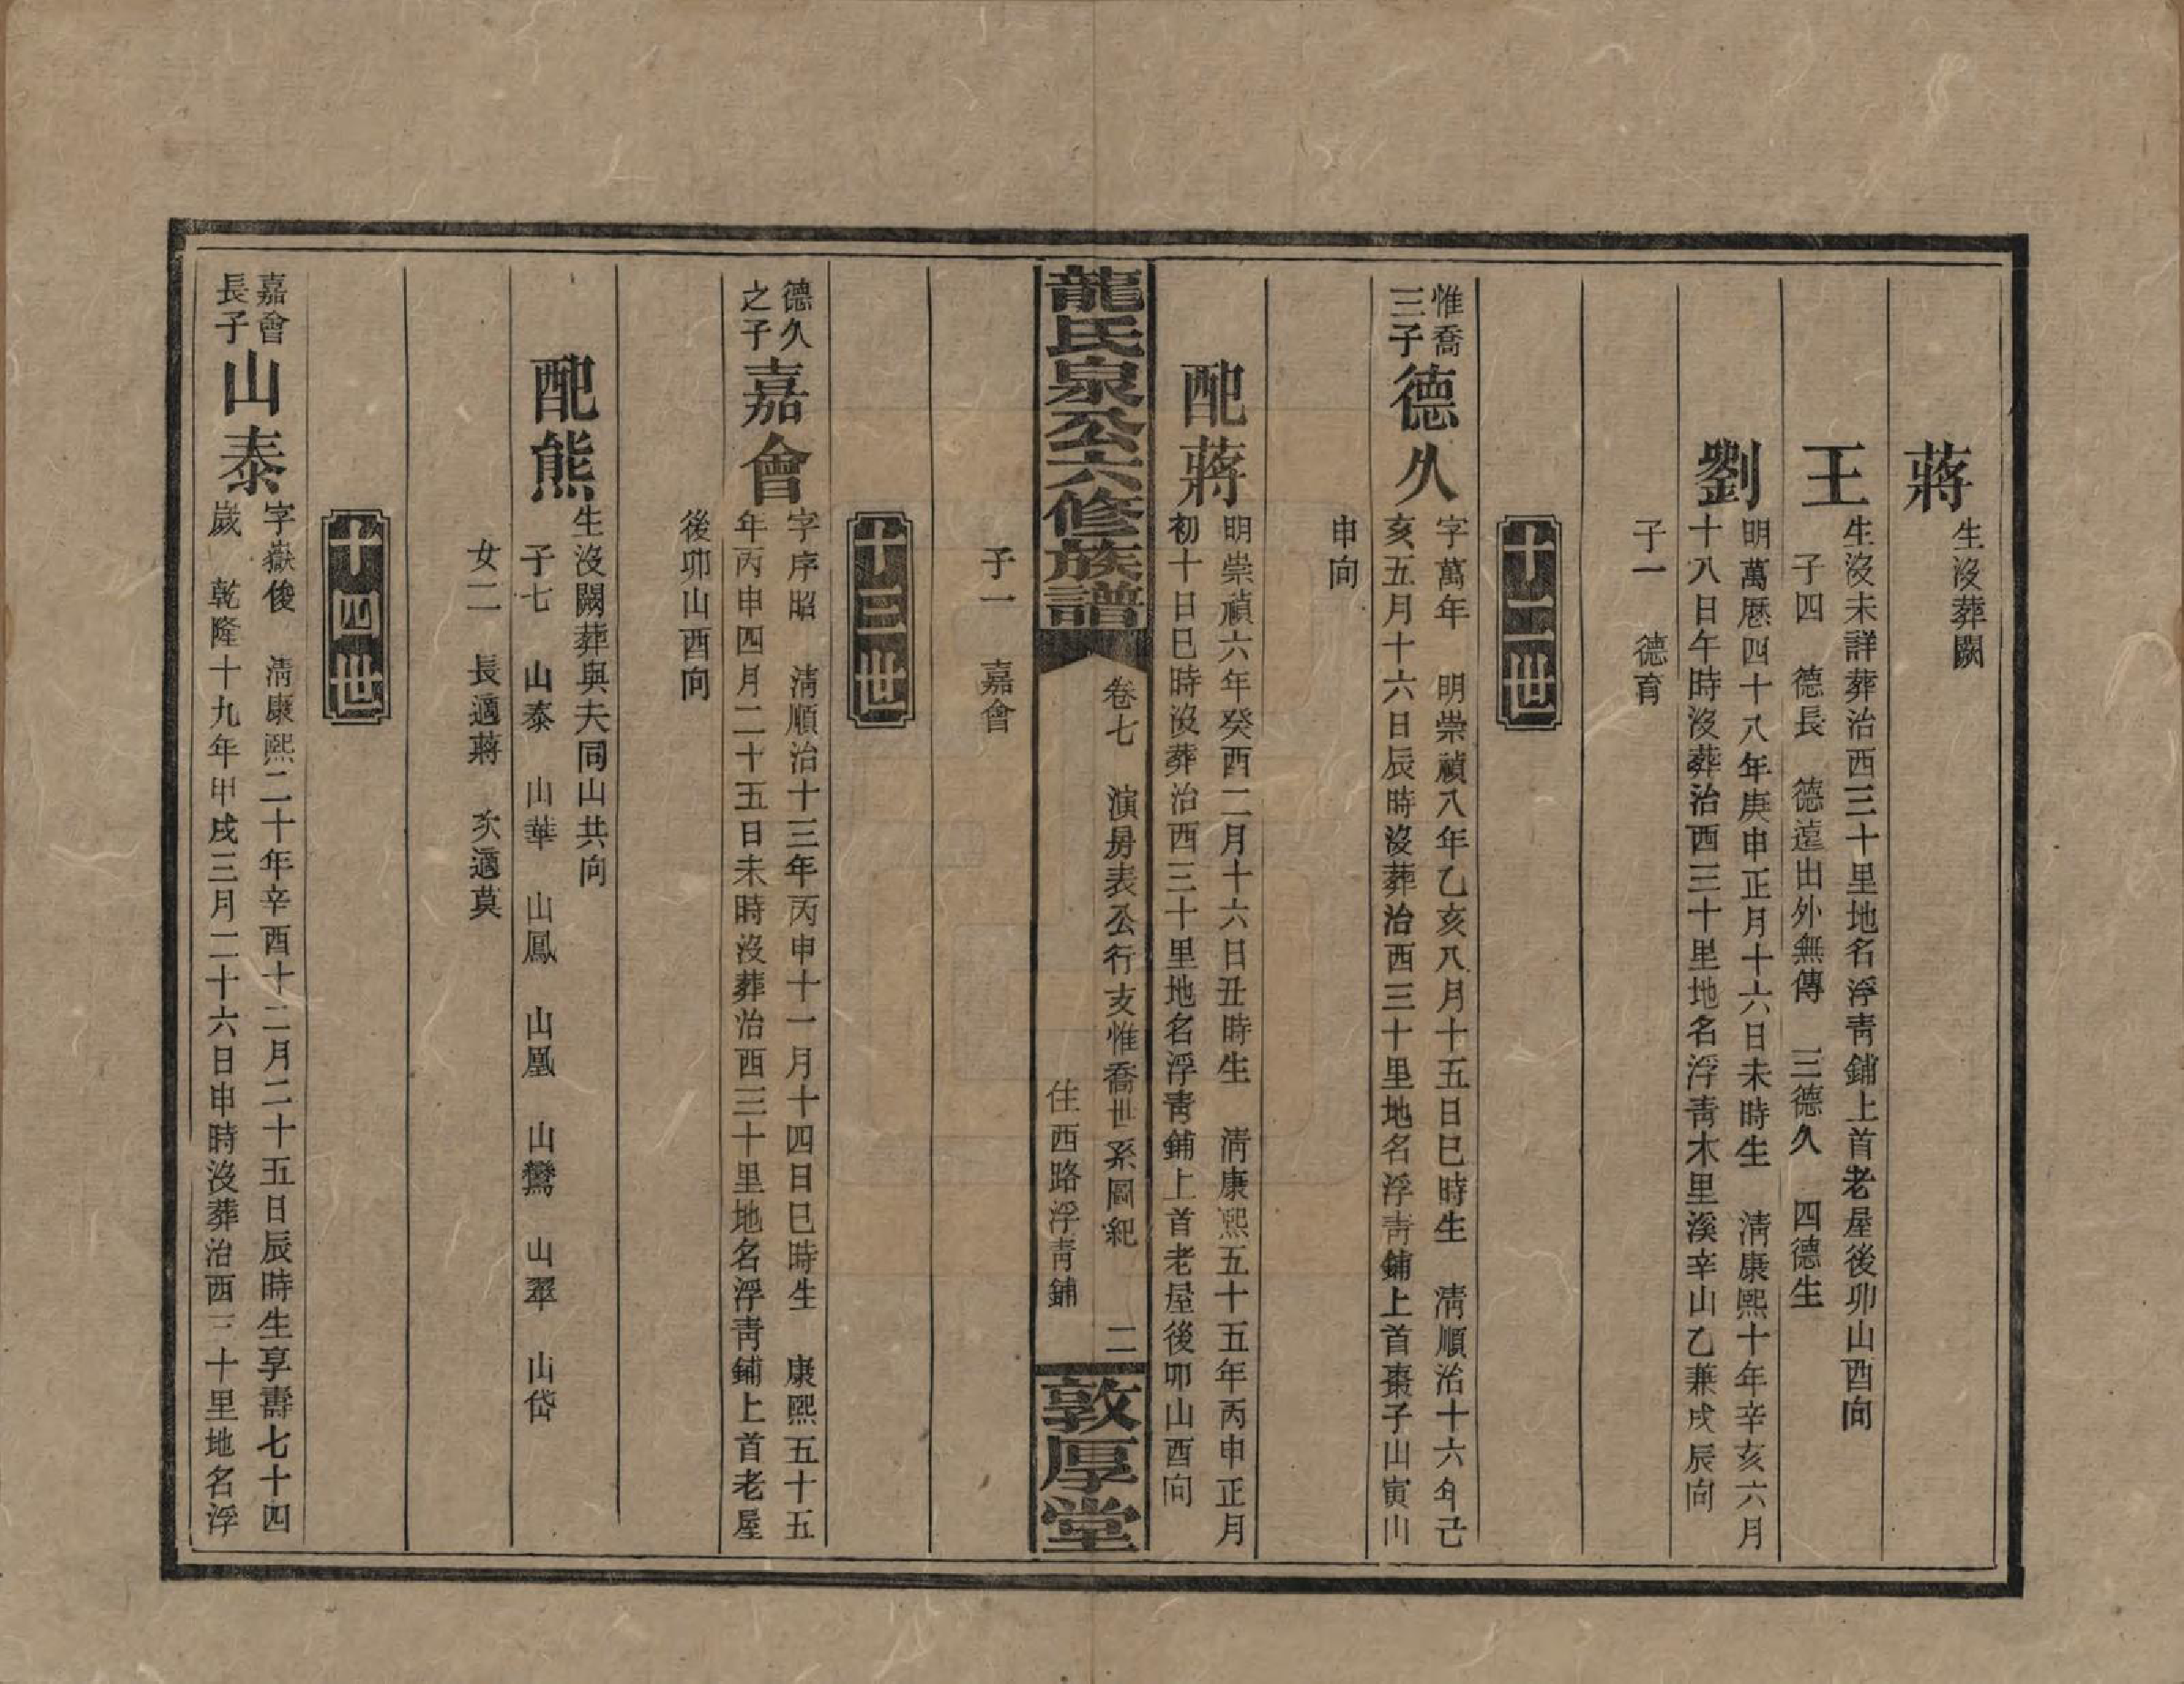 蔣
生沒葬闕
王
生沒未詳葬治西三十里地名浮靑鋪上首老屋後卯山酉向
子四　德長　德遠出外無傳　三德久　四德生
劉
明萬厯四十八年庚申正月十六日未時生　淸康熙十年辛亥六月
十八日午時沒葬治西三十里地名浮靑木里溪辛山乙兼戌辰向
子一　德育
十二世
惟喬
三子
德久
字萬年　明崇禎八年乙亥八月十五日巳時生　淸順治十六年己
亥五月十六日辰時沒葬治西三十里地名浮靑鋪上首棗子山寅山
申向
配蔣
明崇禎六年癸酉二月十六日丑時生　淸康熙五十五年丙申正月
初十日巳時沒葬治西三十里地名浮靑鋪上首老屋後卯山酉向
龍氏泉公六修族譜
卷七　演房表公行支惟喬世系圖紀　二
住西路浮靑鋪
敦厚堂
子一　嘉會
十三世
德久
之子
嘉會
字序昭　淸順治十三年丙申十一月十四日巳時生　康熙五十五
年丙申四月二十五日未時沒葬治西三十里地名浮靑鋪上首老屋
後卯山酉向
配熊
生沒闕葬與夫同山共向
子七　山泰　山華　山鳳　山凰　山鸞　山翠　山岱
女二　長適蔣　次適莫
十四世
嘉會
長子
山泰
字嶽俊　淸康熙二十年辛酉十二月二十五日辰時生享壽七十四
歲　乾隆十九年甲戌三月二十六日申時沒葬治西三十里地名浮